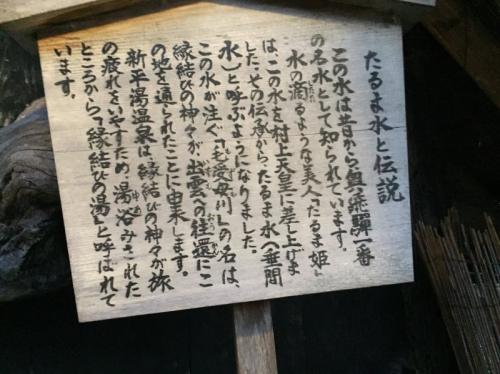 たるま水と伝説
この水は昔から奥飛騨一番
の名水として知られています。
水の滴るような美人「たるま姫」
は、この水を村上天皇に差し上げま
した。その伝承から、たるま水へ垂間
水〉と呼ぶようになりました。
この水が注ぐ「毛受母川」の名は、
縁結びの神々が出雲への往還にこ
の地を通られたことに由来します。
新平湯温泉は、縁結びの神々が旅
の疲れをいやすため湯浴みされた
ところから「縁結びの湯」と呼ばれて
います。